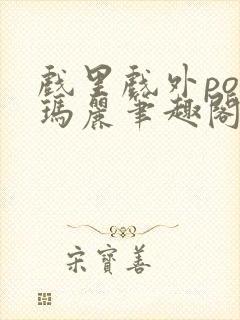 戲里戲外po
瑪麗筆趣閣
宋寶善